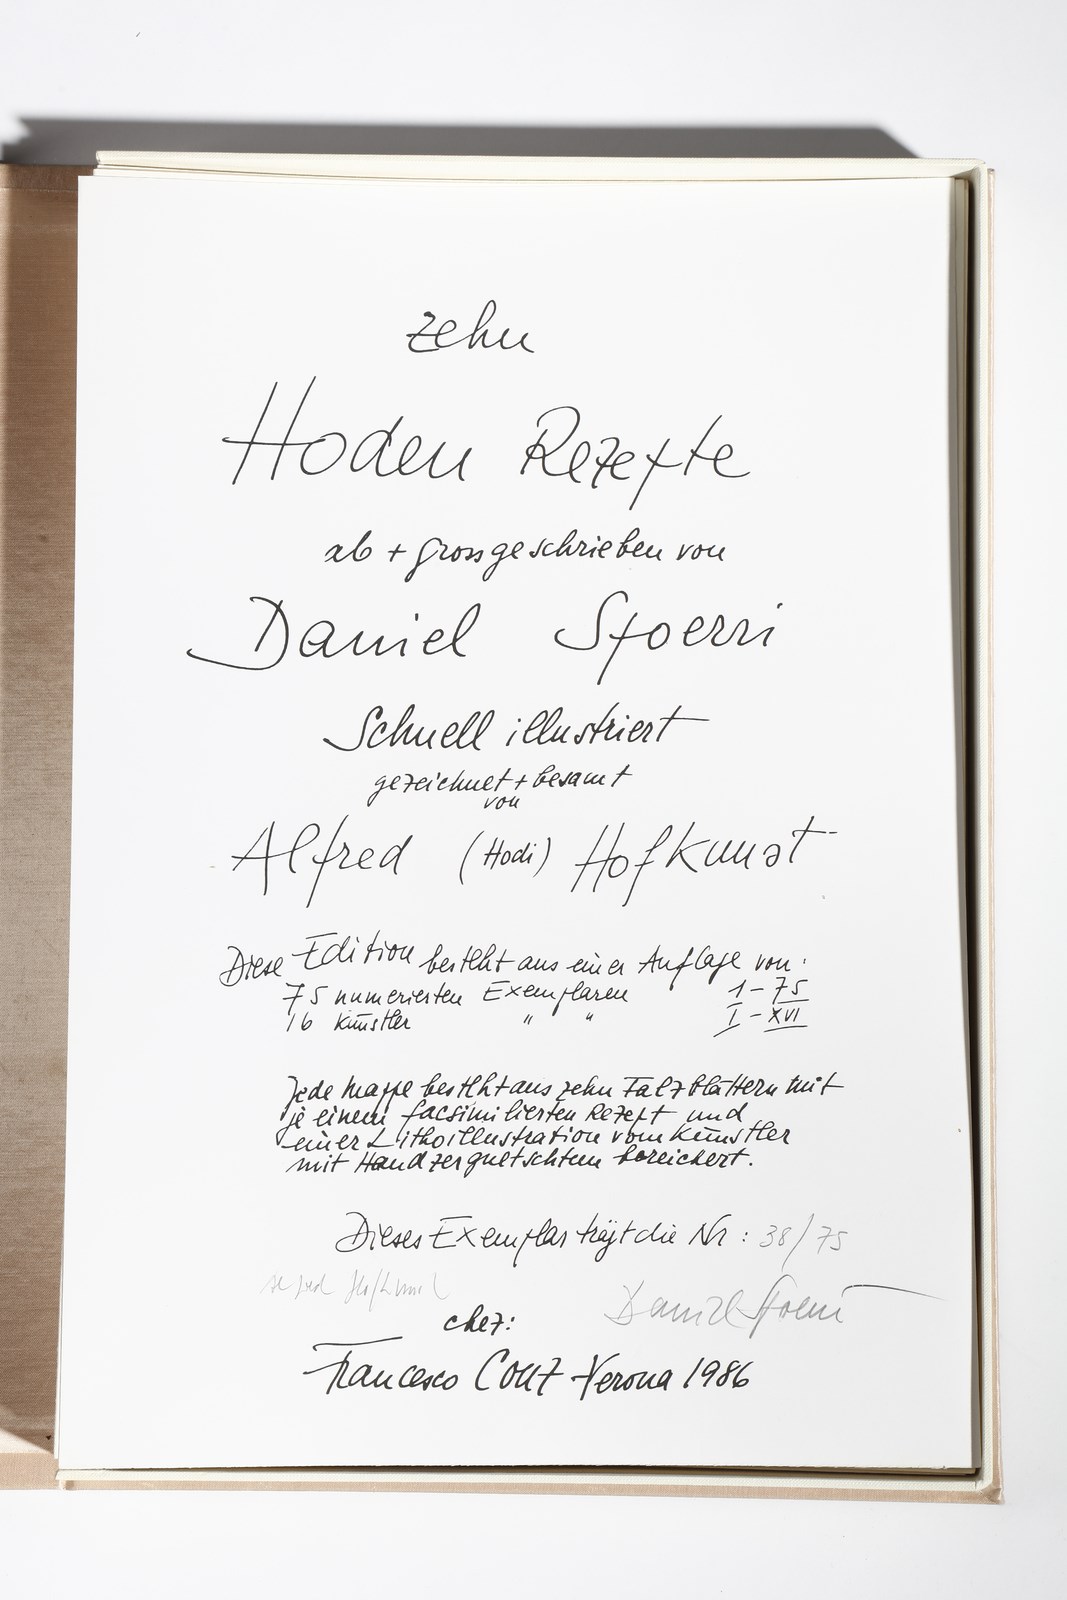 zehn
Hoden Rezepte
ab + grossgeschrieben von
Daniel Spoerri
Schnell illustriert
gezeichnet + besamt
von
Alfred (Hodi) Hofkunst
Diese Edition besteht aus einer Auflage von:
75 numerierten Exemplaren 1-75
16 künstler " " I-XVI
Jede Mappe besteht aus zehn Falzblättern mit
je einem facsimilierten Rezept und
einer Lithoillustration vom Künstler
mit Handzerquetschtem bereichert.
Dieses Exemplar trägt die Nr: 38/75
Alfred Hofkunst
Daniel Spoerri
chez:
Francesco Conz Verona 1986